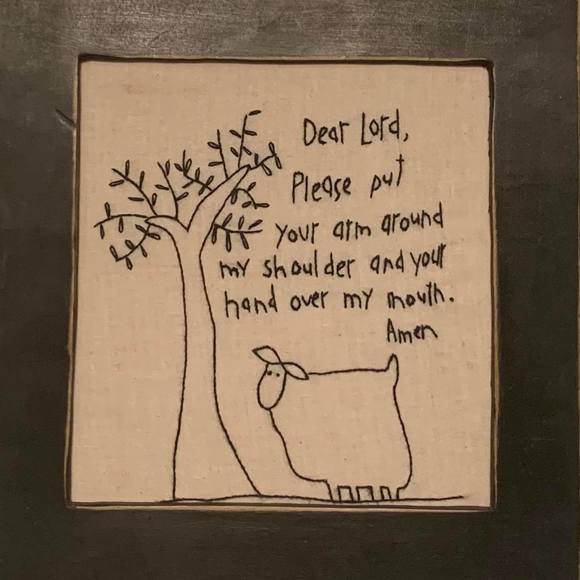 Dear Lord,
Please put
your arm around
my shoulder and your
hand over my mouth.
Amen